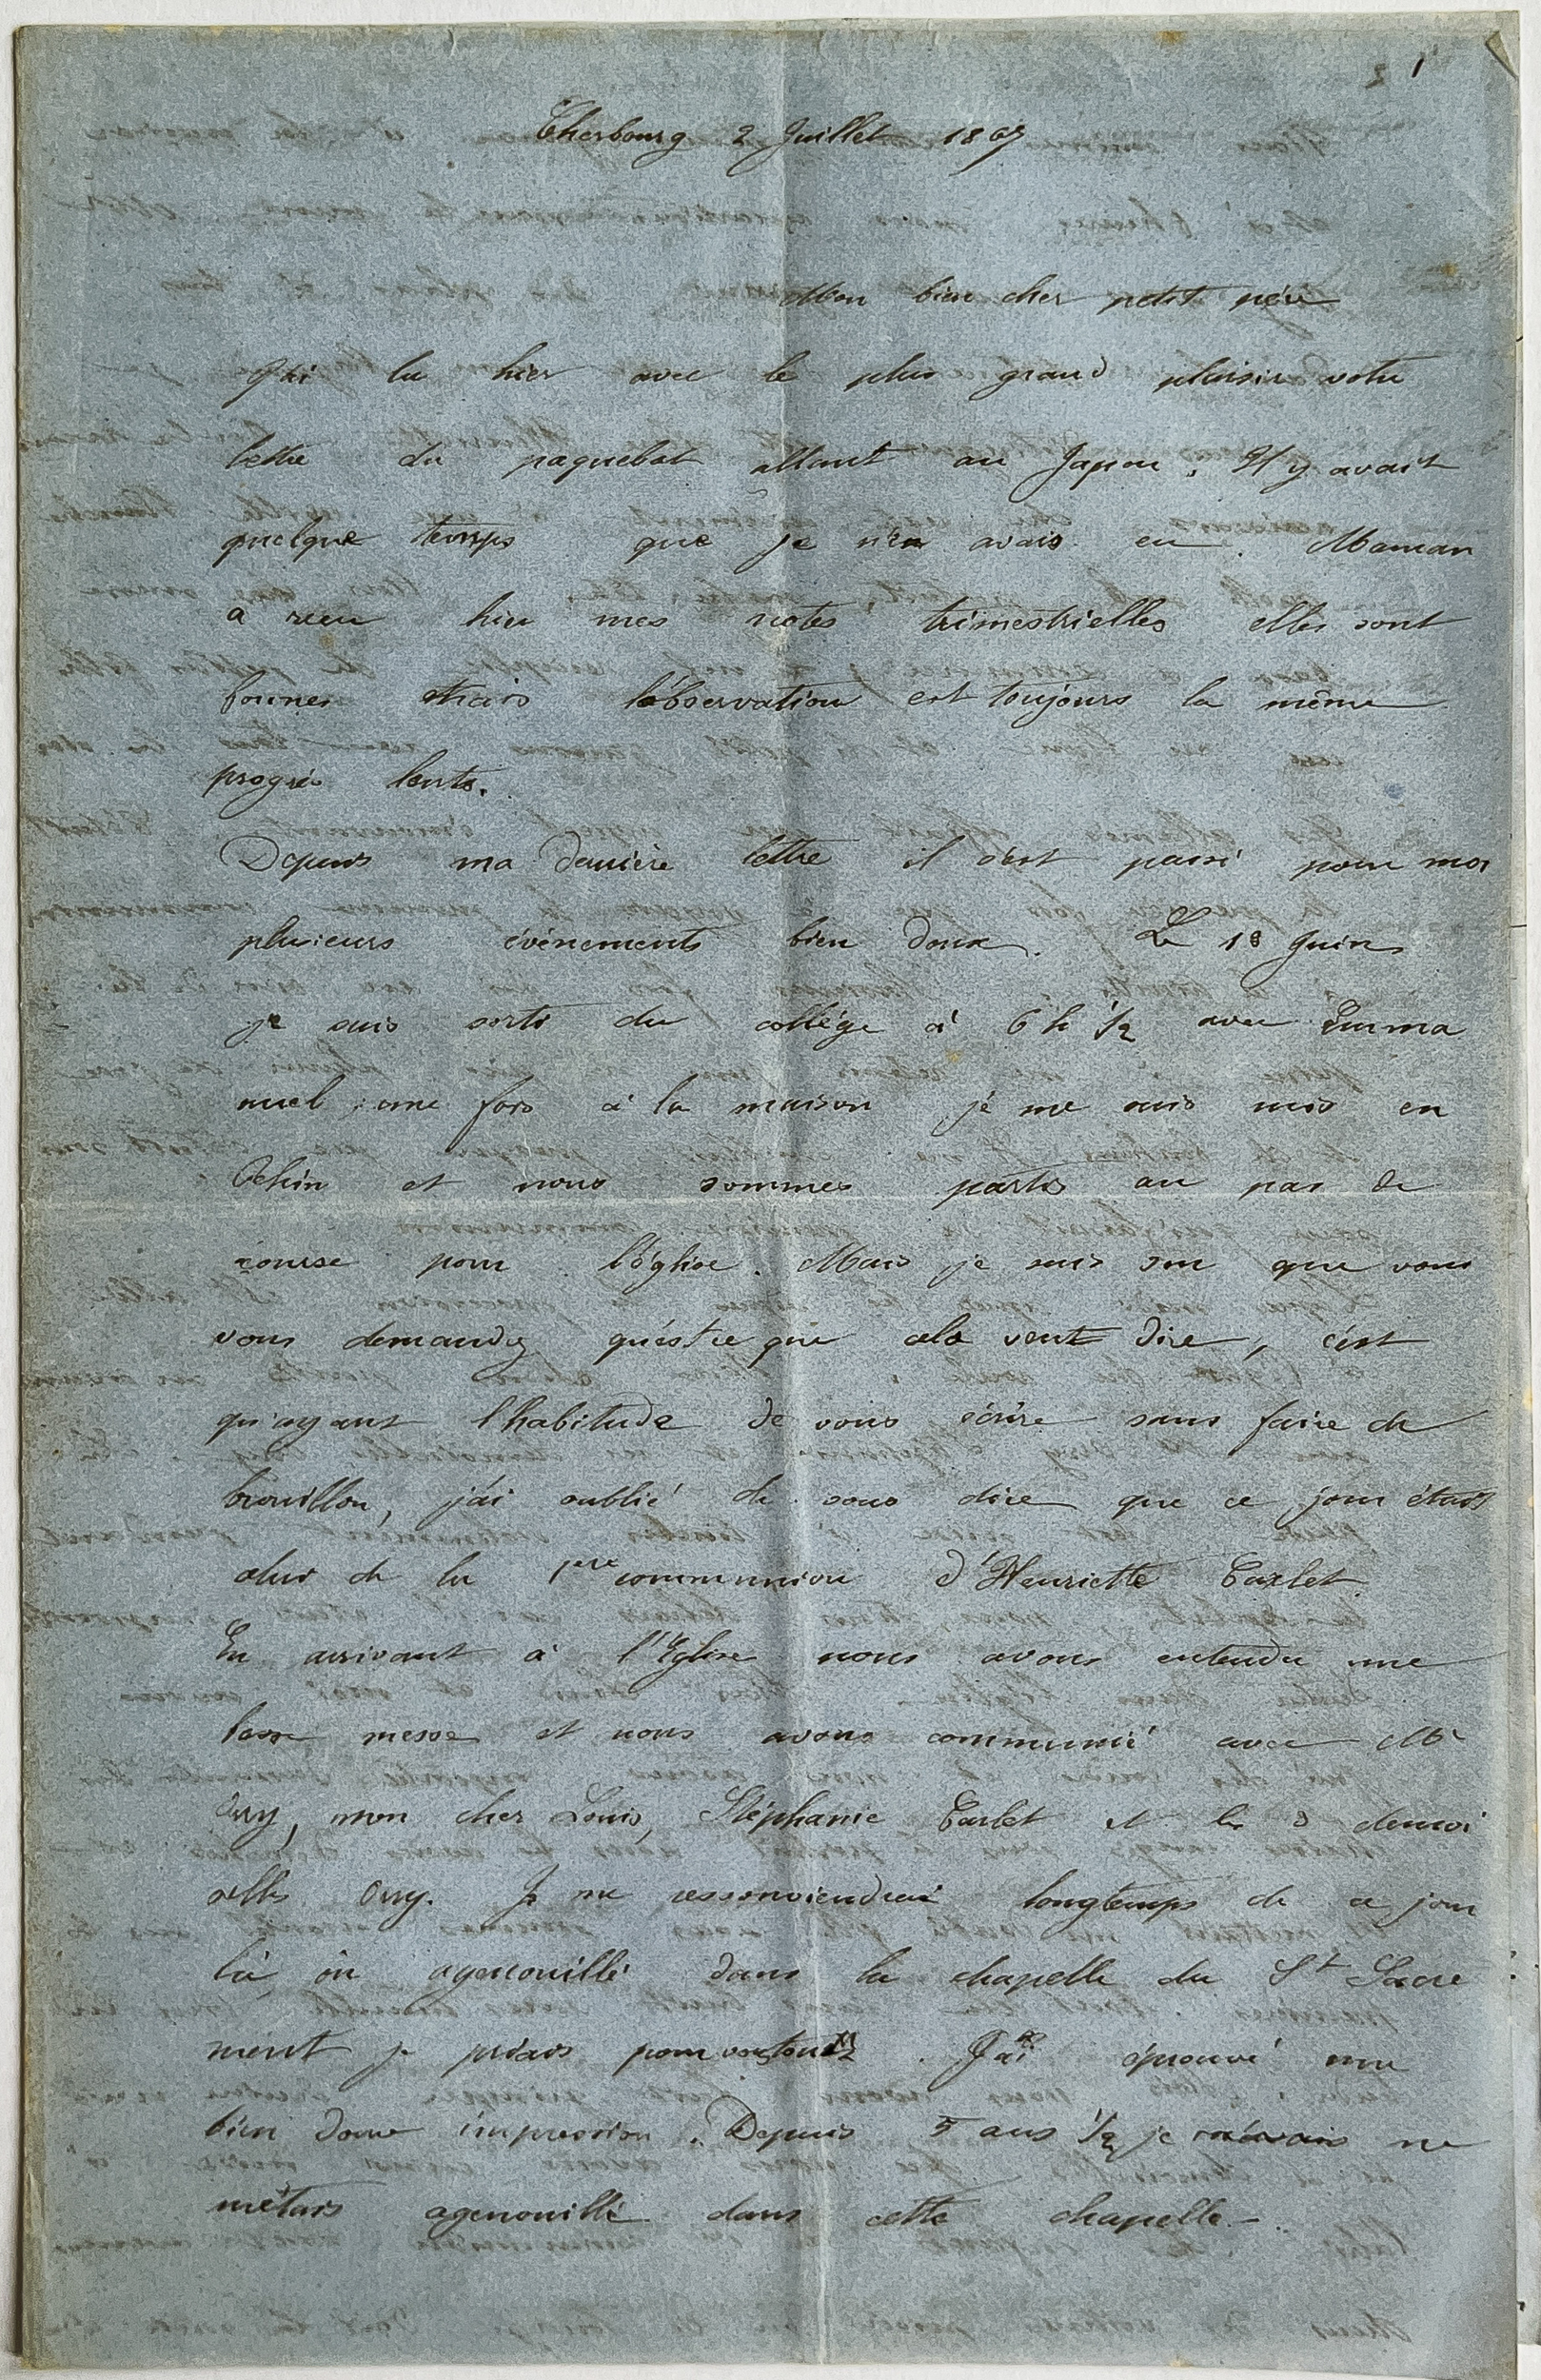 1
Cherbourg 2 Juillet 1867
Mon bien cher petit père
J'ai lu hier avec le plus grand plaisir votre
lettre du paquebot allant au Japon. Il y avait
quelque temps que je n'en avais eu. Maman
a reçu hier mes notes trimestrielles elles sont
bonnes mais l'observation est toujours la même
progrès lents.
Depuis ma dernière lettre il s'est passé pour moi
plusieurs événements bien doux. Le 18 Juin
je suis sorti du collége à 6 h ½ avec Emma
nuel, une fois à la maison je me suis mis en
et nous sommes partis au pas de
course pour l'église. Mais je suis sur que vous
vous demandez qu'est ce que cela veut dire, c'est
qu'ayant l'habitude de vous écrire sans faire de
brouillon, j'ai oublié de vous dire que ce jour était
celui de la 1ere communion d'Henriette Carlet.
En arrivant à l'Eglise nous avons entendu une
basse messe et nous avons communié avec Mr
Orry, mon cher Louis, Stéphanie Carlet et les 3 demoi
selles Orry. Je me ressouviendrai longtemps de ce jour
là, où agenouillé dans la chapelle du St Sacre
ment je priais pour vous tous. J'ai éprouvé une
bien douce impression. Depuis 5 ans ½ je ne
m'étais agenouillé dans cette chapelle.-